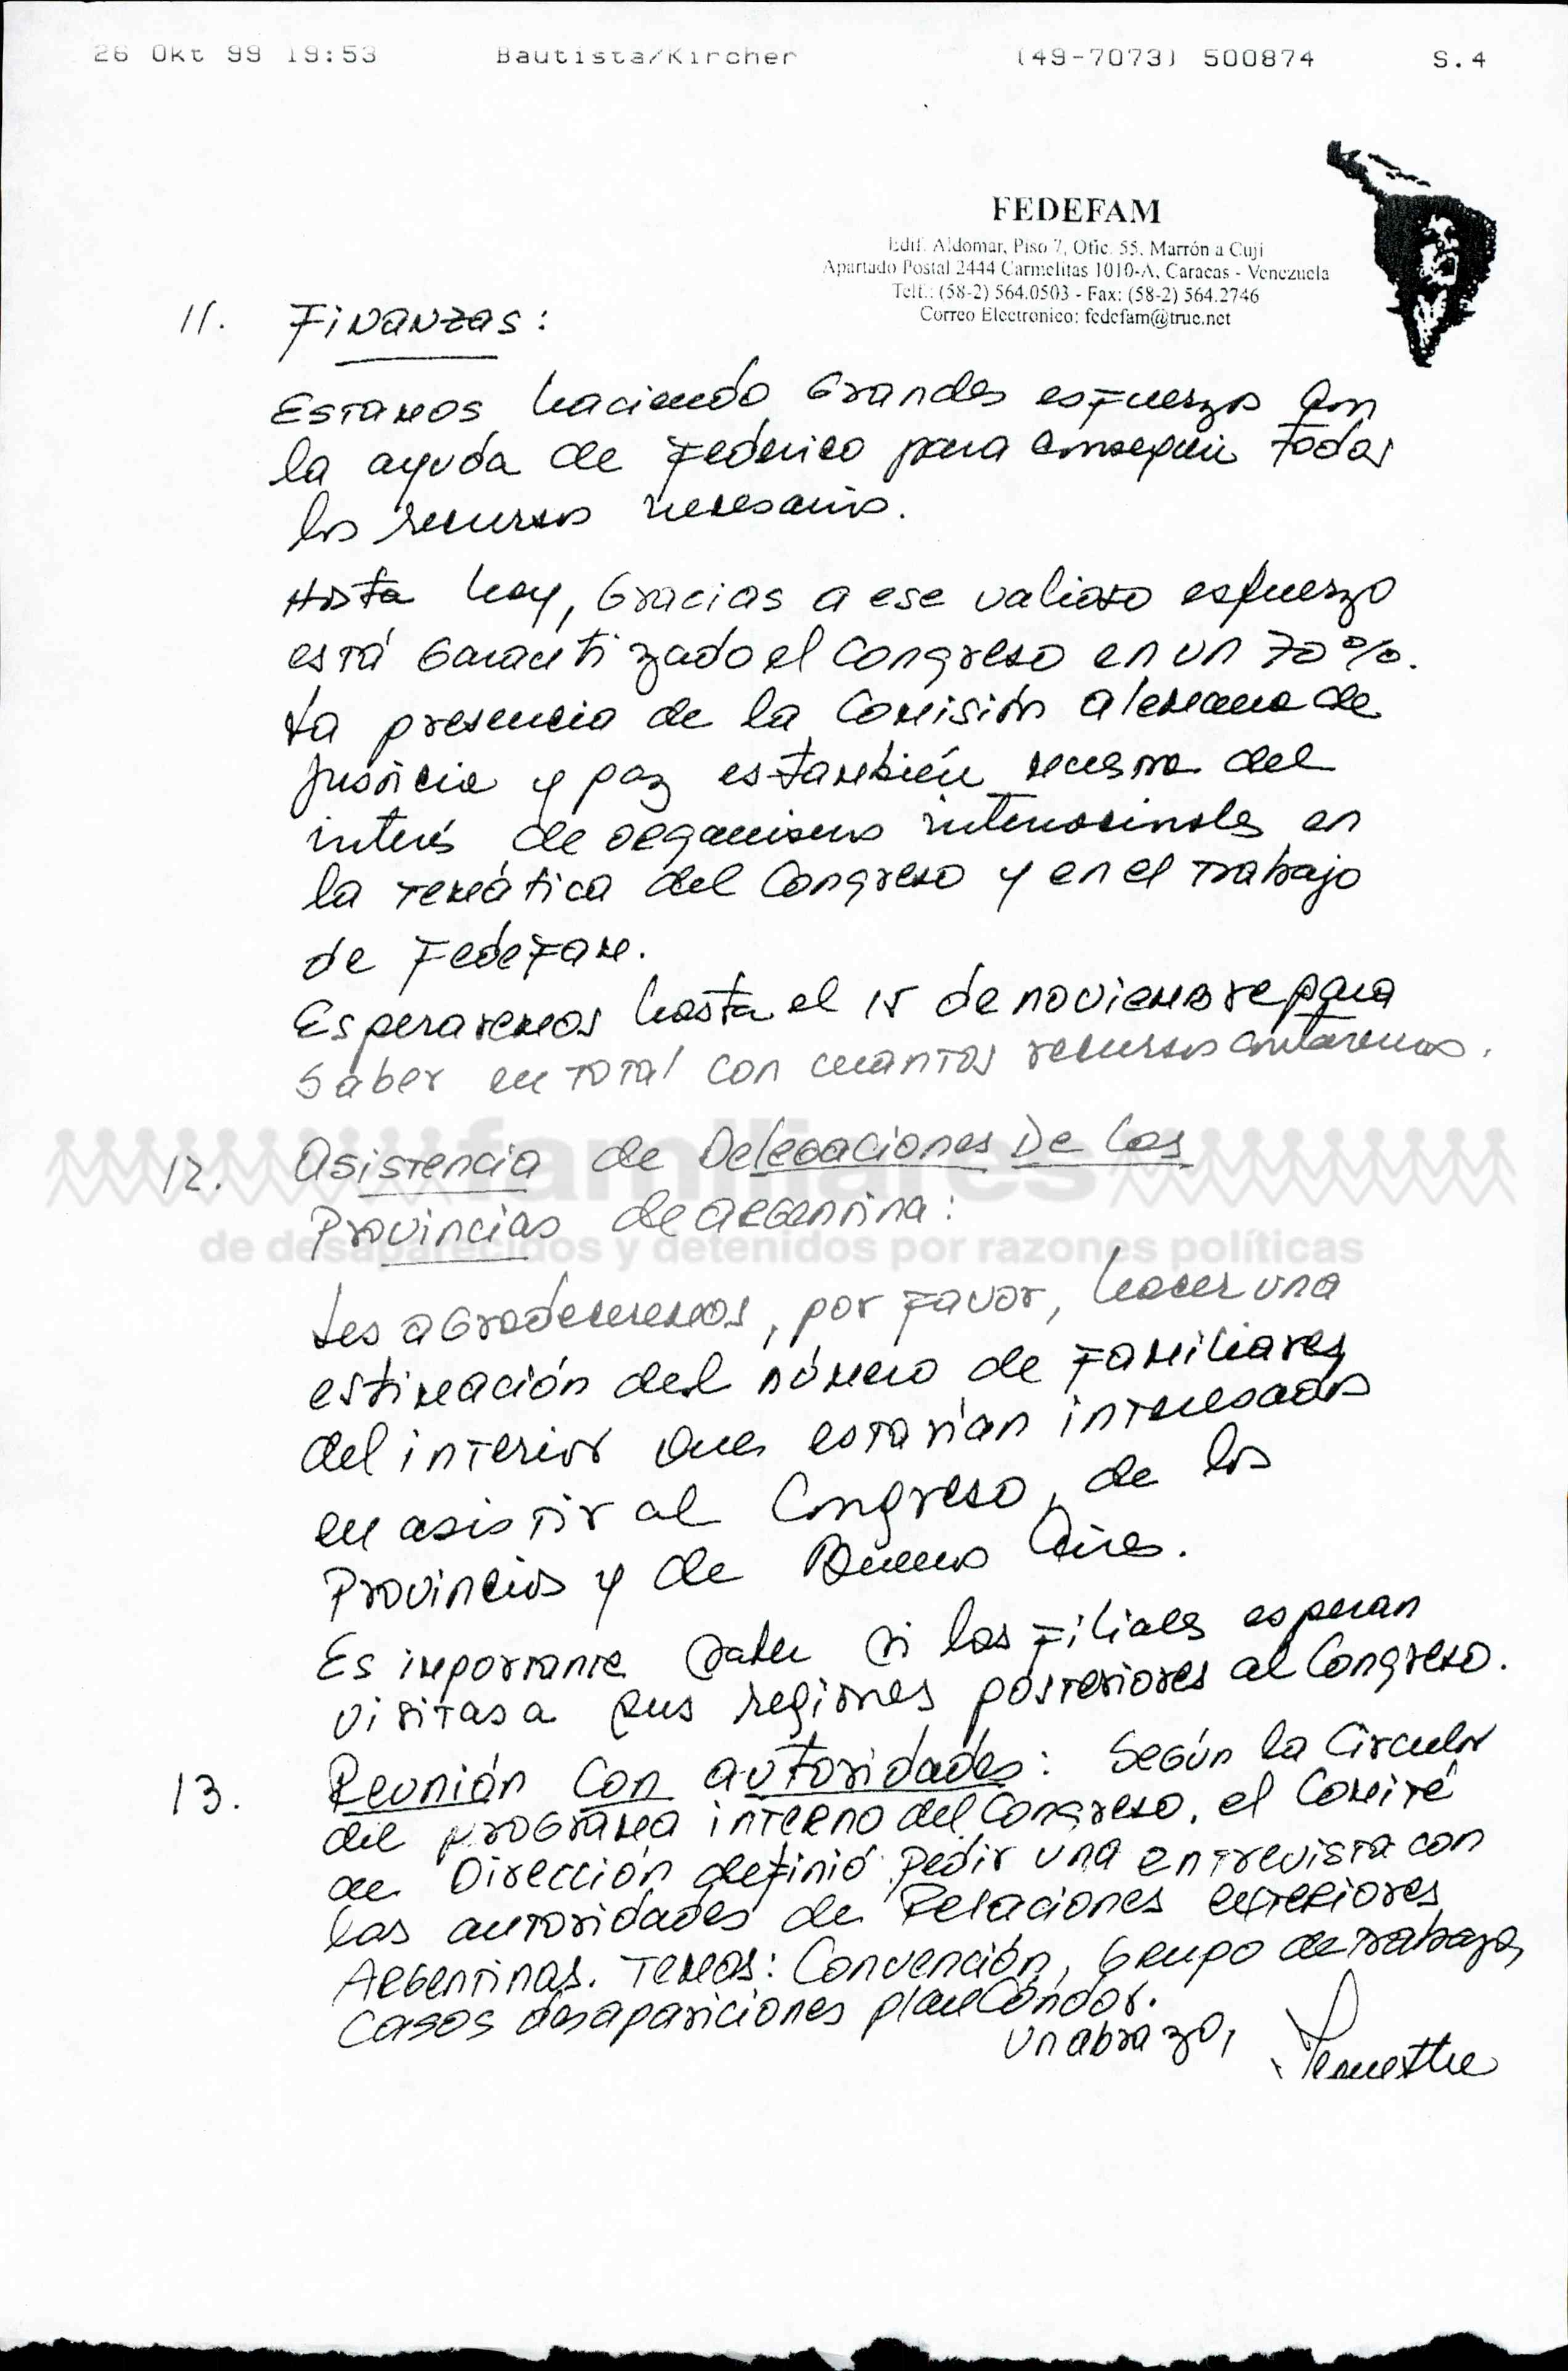 26 Okt 99 19:53 Bautista/Kircher (49-7073) 500874 S.4
FEDEFAM
Edif. Aldomar, Piso 7, Ofic. 55, Marrón a Cují
Apartado Postal 2444 Carmelitas 1010-A, Caracas - Venezuela
Telf.: (58-2) 564.0503 - Fax: (58-2) 564.2746
Correo Electronico: fedefam@true.net
11. Finanzas:
Estamos haciendo grandes esfuerzos con
la ayuda de Federico para conseguir todos
los recursos necesarios.
Hasta hoy, Gracias a ese valioso esfuerzo
está garantizado el Congreso en un 70%.
La presencia de la Comisión alemana de
Justicia y paz es también muestra del
interés de organismos internacionales en
la temática del Congreso y en el trabajo
de Fedefam.
Esperaremos hasta el 15 de noviembre para
saber en total con cuantos recursos contaremos.
12. Asistencia de Delegaciones De las
Provincias de Argentina:
familiares
de desaparecidos y detenidos por razones políticas
Les agradeceremos, por favor, hacer una
estimación del número de familiares
del interior que estarían interesados
en asistir al Congreso, de las
Provincias y de Buenos Aires.
Es importante saber si las Filiales esperan
visitas a sus regiones posteriores al Congreso.
13. Reunión Con autoridades: Según la Circular
del programa interno del Congreso, el Comité
de Dirección definió pedir una entrevista con
las autoridades de Relaciones exteriores
Argentinas. Temas: Convención, Grupo de trabajo,
Casos desapariciones plan Cóndor.
Un abrazo,